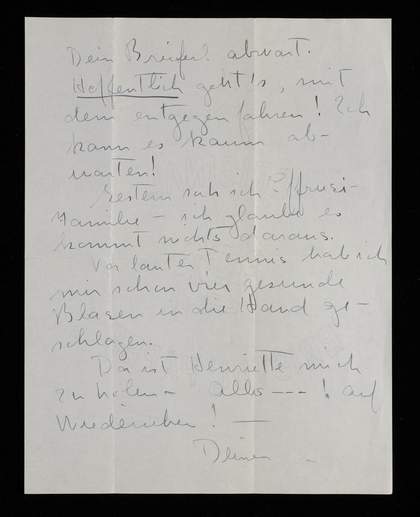 Dein Brieferl abwart.
Hoffentlich geht's, mit
dem entgegen fahren! Ich
kann es kaum ab-
warten!
Gestern sah ich Effrusi-
Familie – ich glaube es
kommt nichts daraus.
Vor lauter Tennis hab ich
mir schon vier gesunde
Blasen in die Hand ge-
schlagen.
Da ist Henriette mich
zu holen – Also --- ! auf
Wiedersehen! —